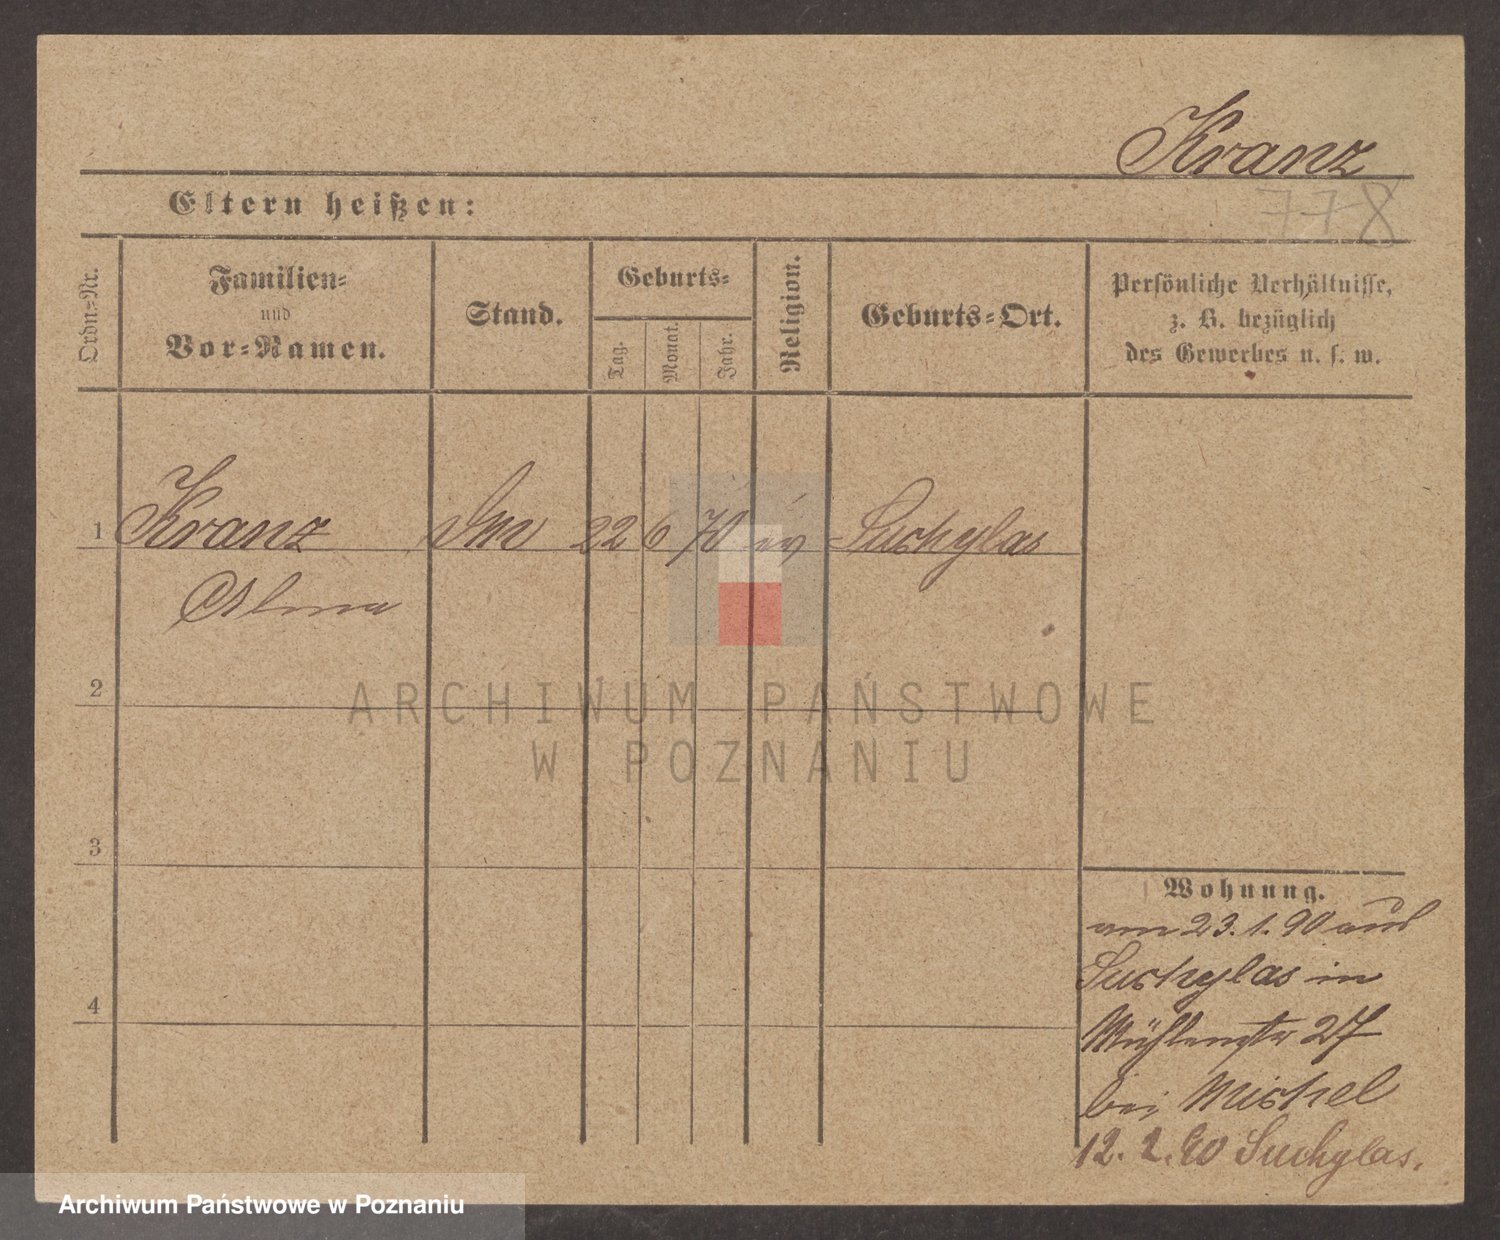 Kranz
778
Eltern heißen:
Ordn=Nr.
Familien=
und
Vor=Namen.
Stand.
Geburts=
Tag.
Monat.
Jahr.
Religion.
Geburts=Ort.
Persönliche Verhältnisse,
z. B. bezüglich
des Gewerbes u. s. w.
1 Kranz 22 6 70 ev Suchylas
Alma
2
ARCHIWUM PAŃSTWOWE
W POZNANIU
3
4
Wohnung.
am 23. 1. 90 aus
Suchylas in
Mühlenstr 27
bei Michel
12. 2. 90 Suchylas.
Archiwum Państwowe w Poznaniu